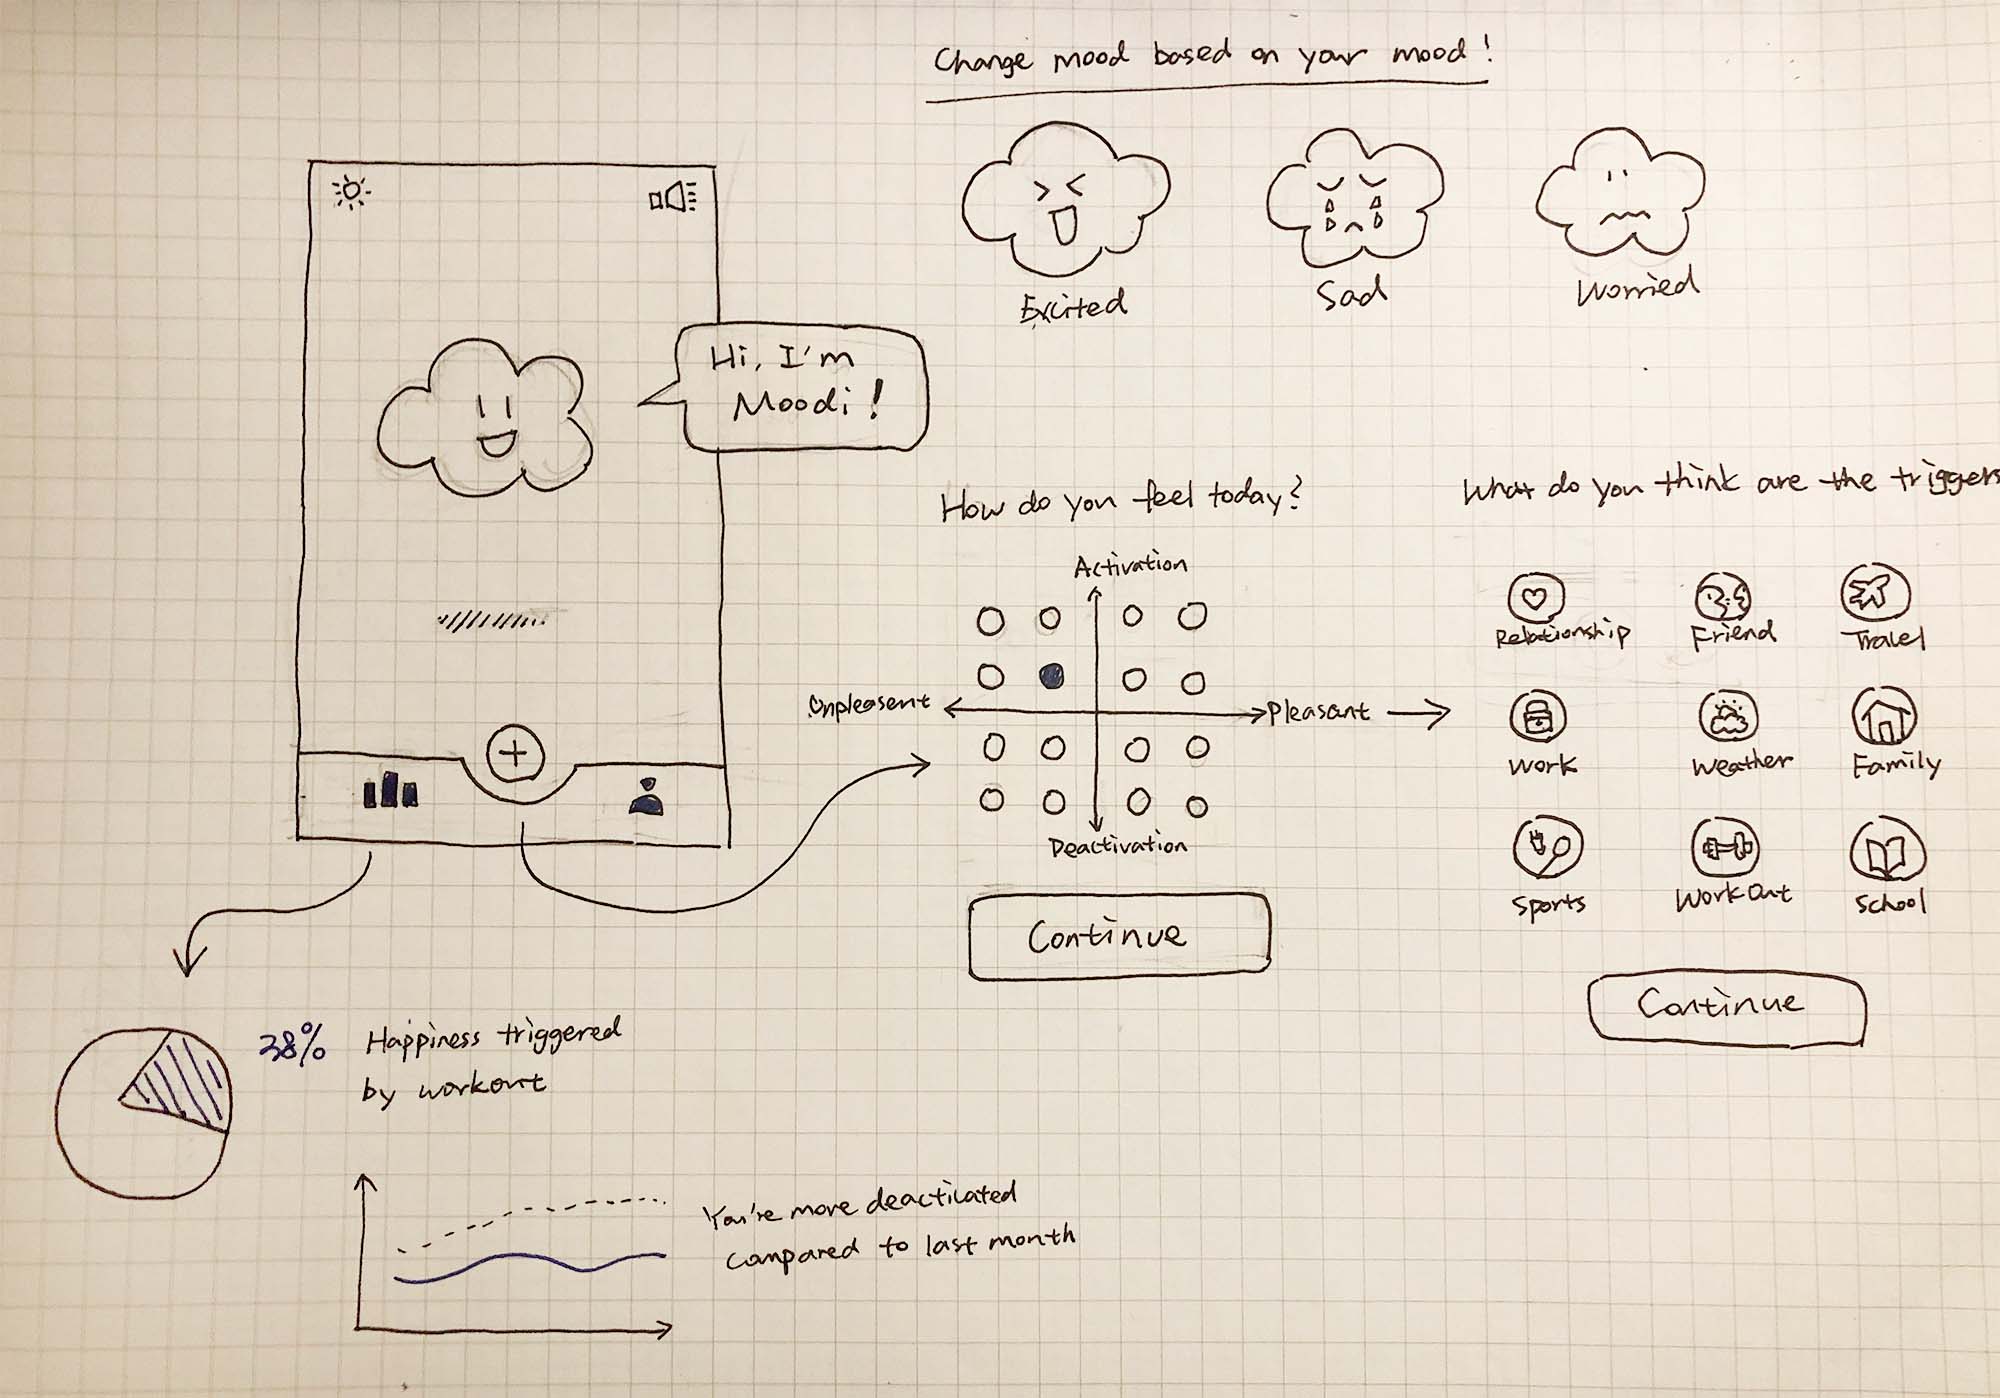 Change mood based on your mood!
Excited
Sad
Worried
Hi, I'm
Moodi!
How do you feel today?
Activation
Unpleasent
Pleasant
Deactivation
Continue
What do you think are the triggers
Relationship
Friend
Travel
Work
Weather
Family
Sports
Workout
School
Continue
38%
Happiness triggered
by workout
You're more deacticated
compared to last month